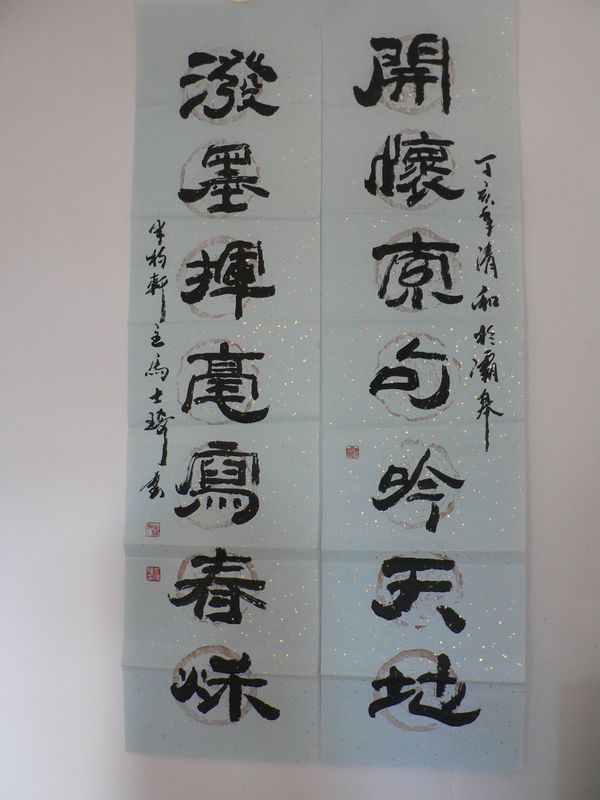 丁亥年清和於灞皋
開懷索句吟天地
潑墨揮毫寫春秌
軒主馬士琦書